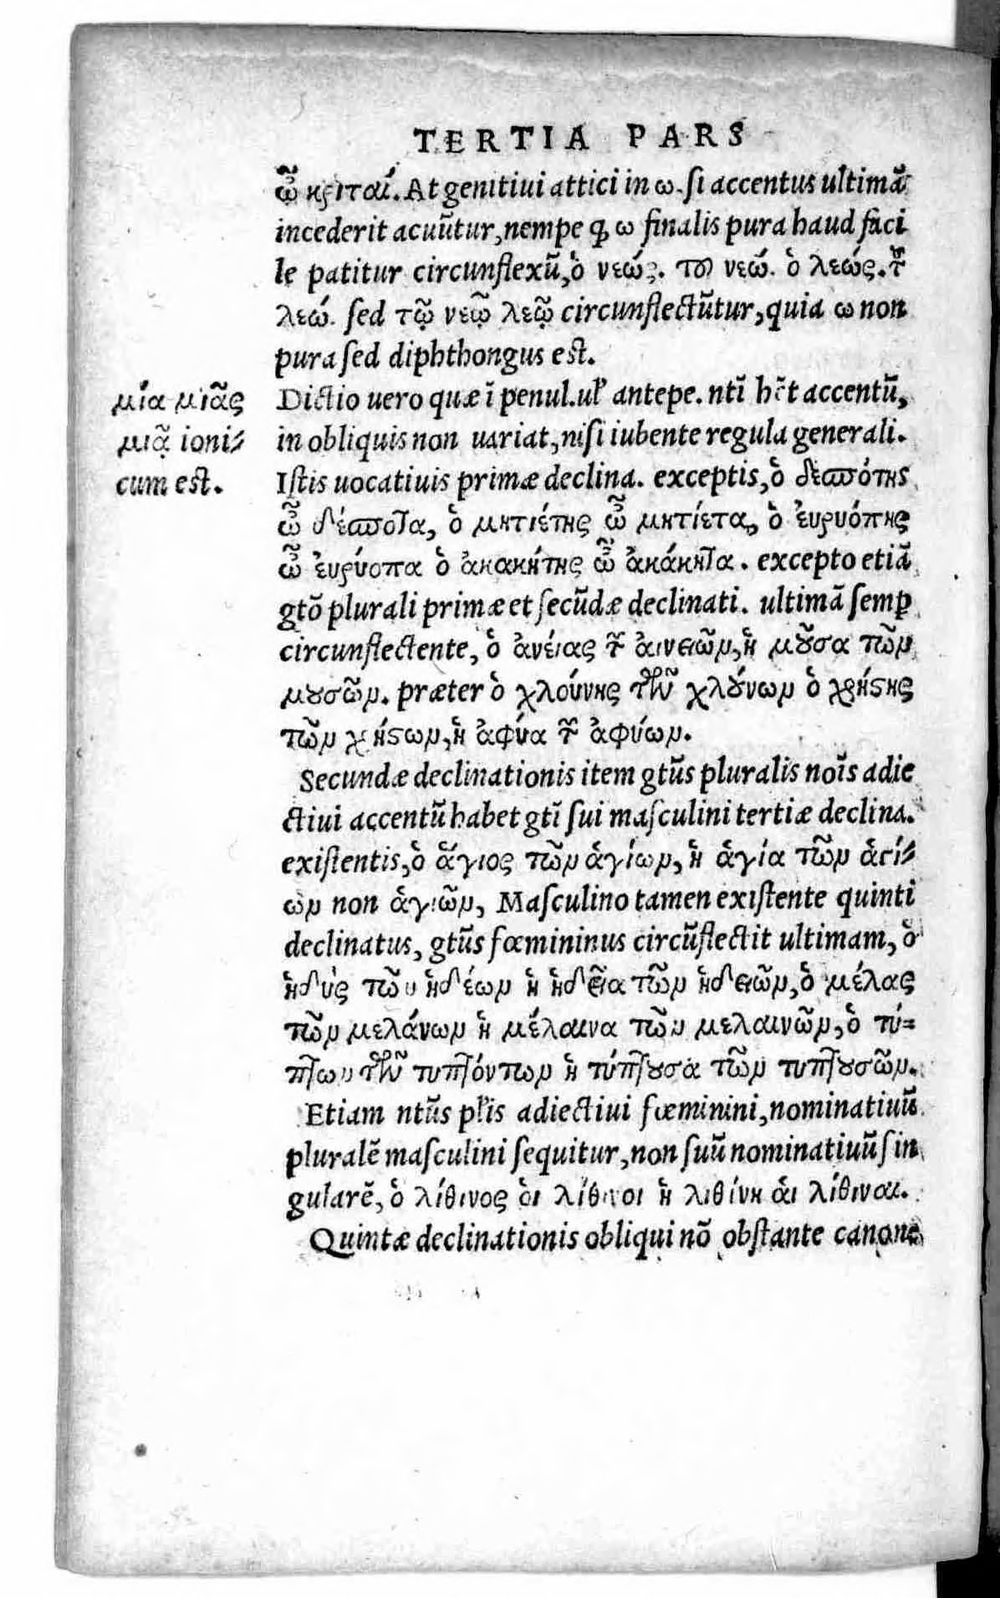 TERTIA PARS
ὦ κριταί. At genitiui attici in ω. si accentus ultimã
incederit acuũtur, nempe ꝙ ω finalis pura haud faci
le patitur circunflexũ, ὁ νεώς. τοῦ νεώ. ὁ λεώς. τοῦ
λεώ. sed τῷ νεῷ λεῷ circunflectũtur, quia ω non
pura sed diphthongus est.
Dictio uero quæ ĩ penul. ul' antepe. ntĩ hẽt accentũ,
in obliquis non uariat, nisi iubente regula generali.
Istis uocatiuis primæ declina. exceptis, ὁ δεσπότης
ὦ δέσποτα, ὁ μητιέτης ὦ μητίετα, ὁ ἐυρυόπης
ὦ ἐυρύοπα ὁ ἀκακήτης ὦ ἀκάκητα. excepto etiã
gtõ plurali primæ et secũdæ declinati. ultimã semꝑ
circunflectente, ὁ ἀινέιας τῶν ἀινειῶν, ἡ μοῦσα τῶν
μουσῶν. præter ὁ χλούνης τῶν χλούνων ὁ χρήστης
τῶν χρήστων, ἡ ἀφύα τῶν ἀφύων.
Secundæ declinationis item gtũs pluralis noĩs adie
ctiui accentũ habet gtĩ sui masculini tertiæ declina.
existentis, ὁ ἅγιος τῶν ἁγίων, ἡ ἁγία τῶν ἁγί⸗
ων non ἁγιῶν, Masculino tamen existente quinti
declinatus, gtũs fœmininus circũflectit ultimam, ὁ
ἡδὺς τῶν ἡδέων ἡ ἡδεῖα τῶν ἡδειῶν, ὁ μέλας
τῶν μελάνων ἡ μέλαινα τῶν μελαινῶν, ὁ τύ⸗
πτων τῶν τυπτόντων ἡ τύπτουσα τῶν τυπτουσῶν.
Etiam ntũs pl'is adiectiui fœminini, nominatiuũ
pluralẽ masculini sequitur, non suũ nominatiuũ sin
gularẽ, ὁ λίθινος ὁι λίθινοι ἡ λιθίνη ἁι λίθιναι.
Quintæ declinationis obliqui nõ obstante canone
μία μιᾶς
μιᾷ ioni⸗
cum est.